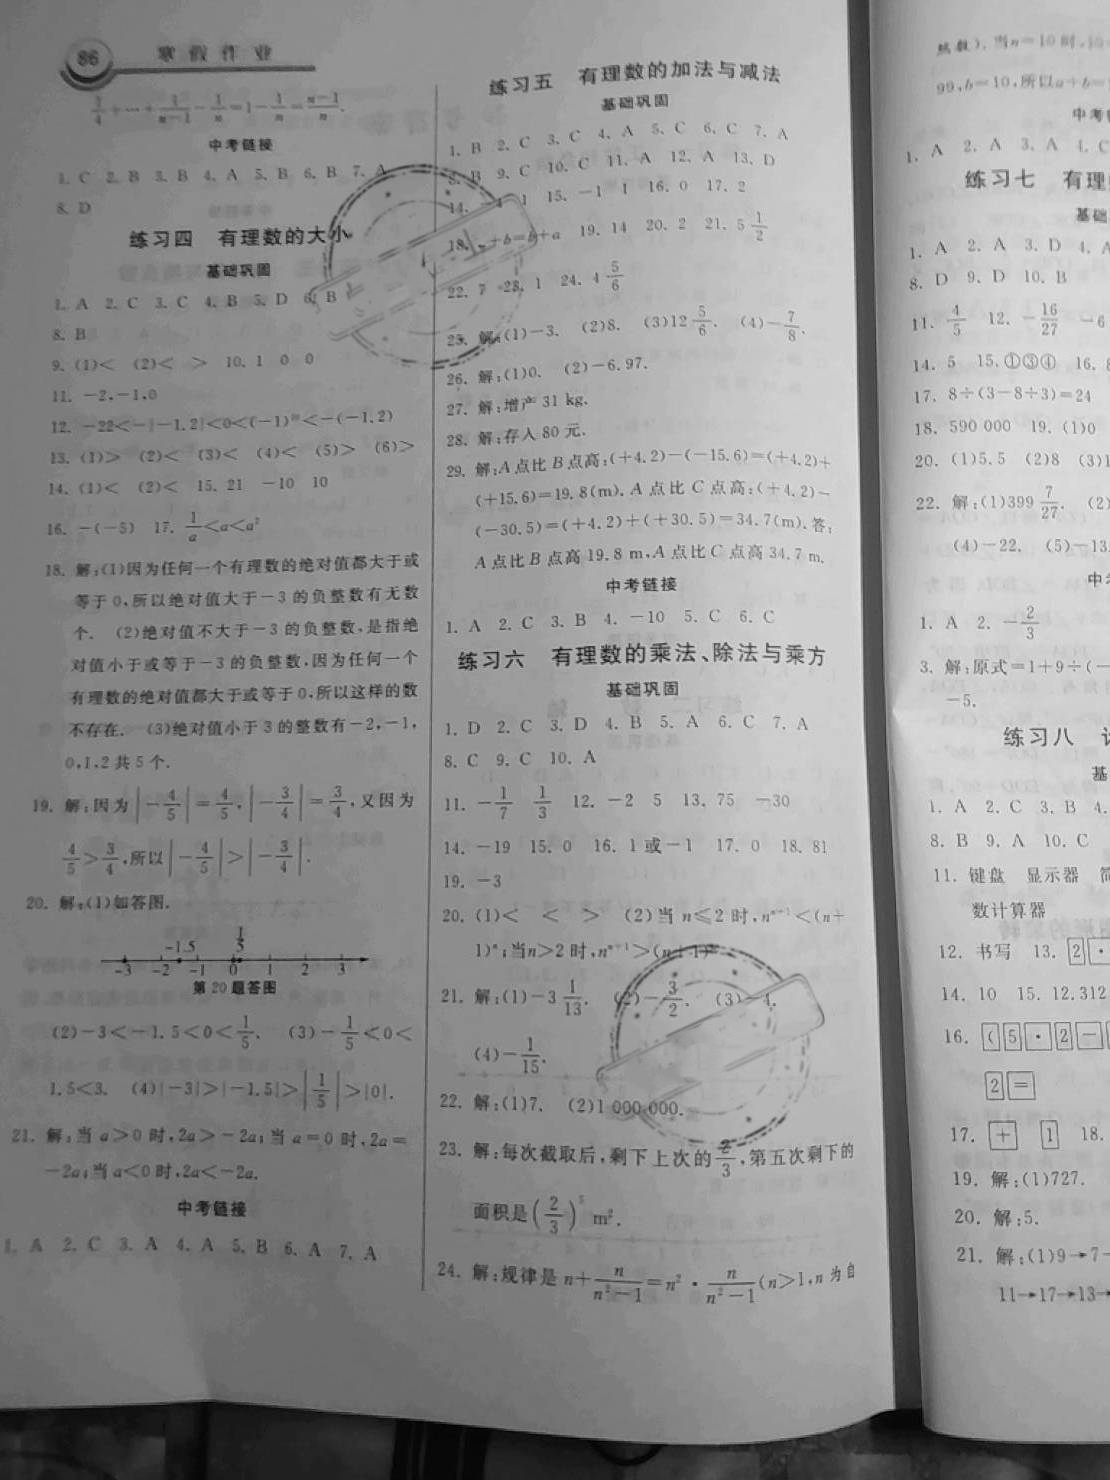 86 寒假作业
1/4+…+1/(n-1)-1/n=1-1/n=(n-1)/n.
中考链接
1. C 2. B 3. B 4. A 5. B 6. B 7. A
8. D
练习四 有理数的大小
基础巩固
1. A 2. C 3. C 4. B 5. D 6. B
8. B
9. (1)< (2)< > 10. 1 0 0
11. -2,-1,0
12. -22<-|-1.2|<0<(-1)¹⁰<-(-1.2)
13. (1)> (2)< (3)< (4)< (5)> (6)>
14. (1)< (2)< 15. 21 -10 10
16. -(-5) 17. 1/a<a<a²
18. 解:(1)因为任何一个有理数的绝对值都大于或
等于0,所以绝对值大于-3的负整数有无数
个. (2)绝对值不大于-3的负整数,是指绝
对值小于或等于-3的负整数,因为任何一个
有理数的绝对值都大于或等于0,所以这样的数
不存在. (3)绝对值小于3的整数有-2,-1,
0,1,2共5个.
19. 解:因为|-4/5|=4/5,|-3/4|=3/4,又因为
4/5>3/4,所以|-4/5|>|-3/4|.
20. 解:(1)如答图.
-1.5 1/5
-3 -2 -1 0 1 2 3
第20题答图
(2)-3<-1.5<0<1/5. (3)-1/5<0<
1.5<3. (4)|-3|>|-1.5|>|1/5|>|0|.
21. 解:当a>0时,2a>-2a;当a=0时,2a=
-2a;当a<0时,2a<-2a.
中考链接
1. A 2. C 3. A 4. A 5. B 6. A 7. A
练习五 有理数的加法与减法
基础巩固
1. B 2. C 3. C 4. A 5. C 6. C 7. A
8. B 9. C 10. C 11. A 12. A 13. D
14. -4 1 15. -1 1 16. 0 17. 2
18. a+b=b+a 19. 14 20. 2 21. 5 1/2
22. 7 23. 1 24. 4 5/6
25. 解:(1)-3. (2)8. (3)12 5/6. (4)-7/8.
26. 解:(1)0. (2)-6.97.
27. 解:增产31 kg.
28. 解:存入80元.
29. 解:A点比B点高:(+4.2)-(-15.6)=(+4.2)+
(+15.6)=19.8(m).A点比C点高:(+4.2)-
(-30.5)=(+4.2)+(+30.5)=34.7(m).答:
A点比B点高19.8 m,A点比C点高34.7 m.
中考链接
1. A 2. C 3. B 4. -10 5. C 6. C
练习六 有理数的乘法、除法与乘方
基础巩固
1. D 2. C 3. D 4. B 5. A 6. C 7. A
8. C 9. C 10. A
11. -1/7 1/3 12. -2 5 13. 75 -30
14. -19 15. 0 16. 1或-1 17. 0 18. 81
19. -3
20. (1)< < > (2)当n≤2时,nⁿ⁺¹<(n+
1)ⁿ;当n>2时,nⁿ⁺¹>(n+1)ⁿ
21. 解:(1)-3 1/13. (2)-3/2. (3)-4.
(4)-1/15.
22. 解:(1)7. (2)1 000 000.
23. 解:每次截取后,剩下上次的2/3,第五次剩下的
面积是(2/3)⁵ m².
24. 解:规律是n+n/(n²-1)=n²·n/(n²-1)(n>1,n为自
然数). 当n=10时,10
99,b=10,所以a+b=
中考
1. A 2. A 3. A 4. C
练习七 有理
基础
1. A 2. A 3. D 4. A
8. D 9. D 10. B
11. 4/5 12. -16/27 -6
14. 5 15. ①③④ 16. 8
17. 8÷(3-8÷3)=24
18. 590 000 19. (1)0
20. (1)5.5 (2)8 (3)1
22. 解:(1)399 7/27. (2)
(4)-22. (5)-13.
中
1. A 2. -2/3
3. 解:原式=1+9÷(-
-5.
练习八
基
1. A 2. C 3. B 4.
8. B 9. A 10. C
11. 键盘 显示器
数计算器
12. 书写 13. 2 ·
14. 10 15. 12.312
16. ( 5 · 2 -
2 =
17. + 1 18.
19. 解:(1)727.
20. 解:5.
21. 解:(1)9→7→
11→17→13→